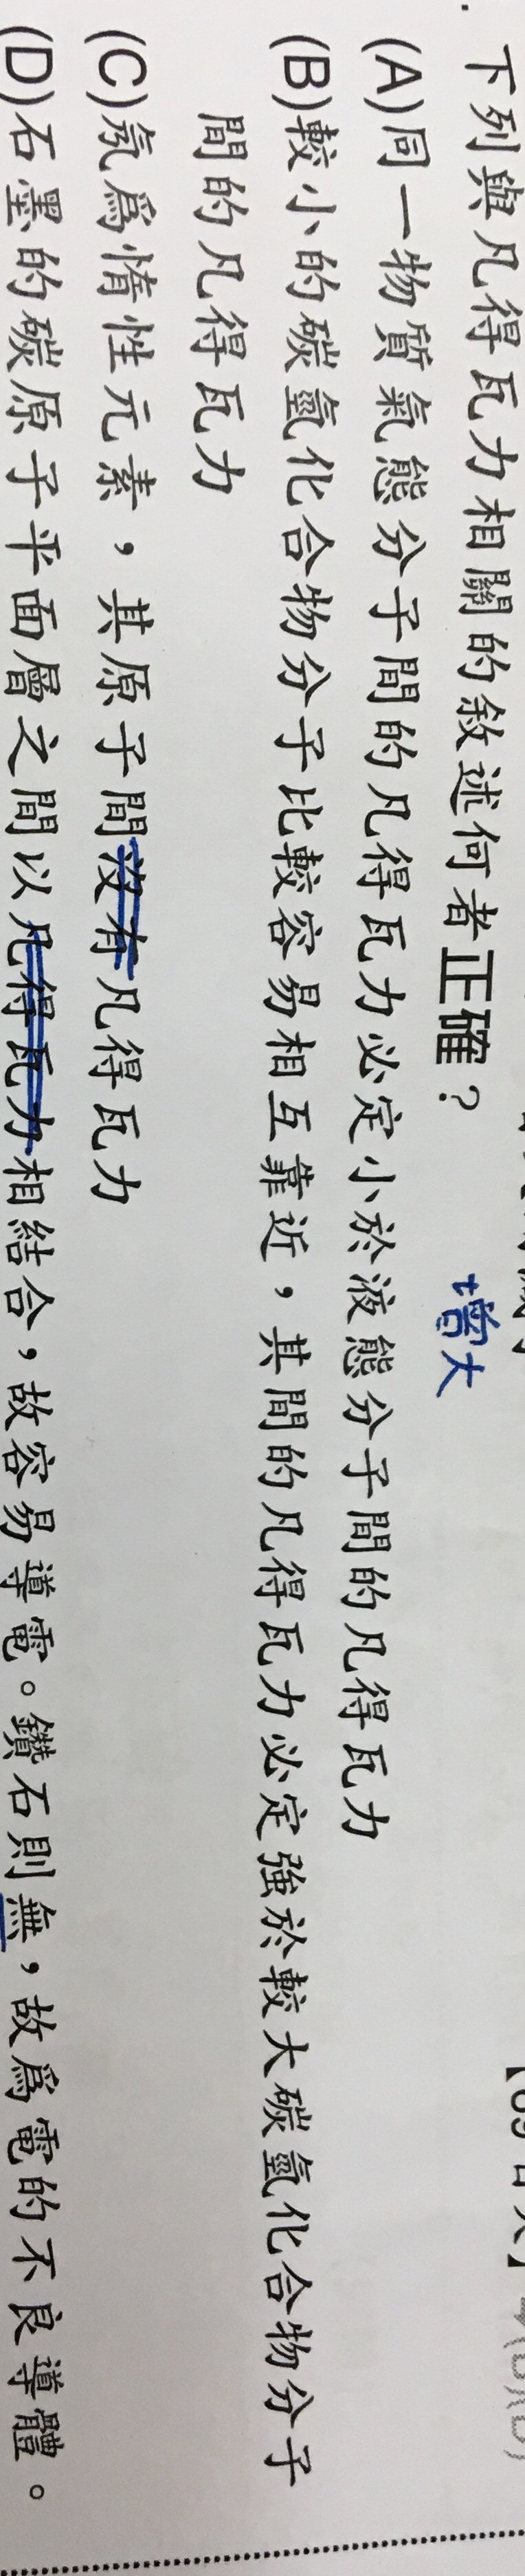 . 下列與凡得瓦力相關的敘述何者正確？
增大
(A)同一物質氣態分子間的凡得瓦力必定小於液態分子間的凡得瓦力
(B)較小的碳氫化合物分子比較容易相互靠近，其間的凡得瓦力必定強於較大碳氫化合物分子
間的凡得瓦力
(C)氖爲惰性元素，其原子間沒有凡得瓦力
(D)石墨的碳原子平面層之間以凡得瓦力相結合，故容易導電。鑽石則無，故爲電的不良導體。